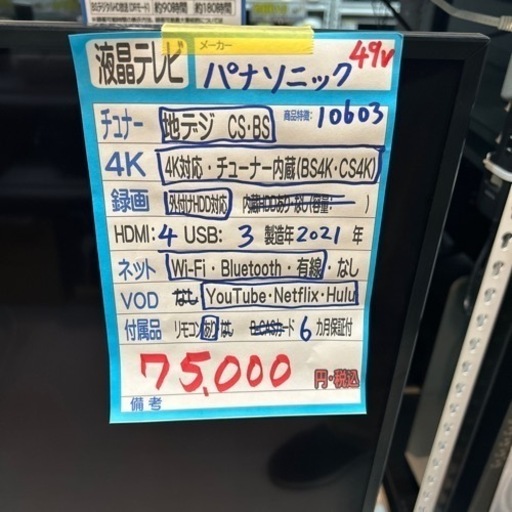 約90時間 約180時間
液晶テレビ メーカー パナソニック 49v
チュナー 地デジ CS・BS 商品特徴: 10603
4K 4K対応・チューナー内蔵(BS4K・CS4K)
録画 外付けHDD対応 内蔵HDDあり・なし(容量: )
HDMI: 4 USB: 3 製造年2021年
ネット Wi-Fi・Bluetooth・有線・なし
VOD なし YouTube・Netflix・Hulu
付属品 リモコンあり・なし B-CASカード 6カ月保証付
75,000 円・税込
備考